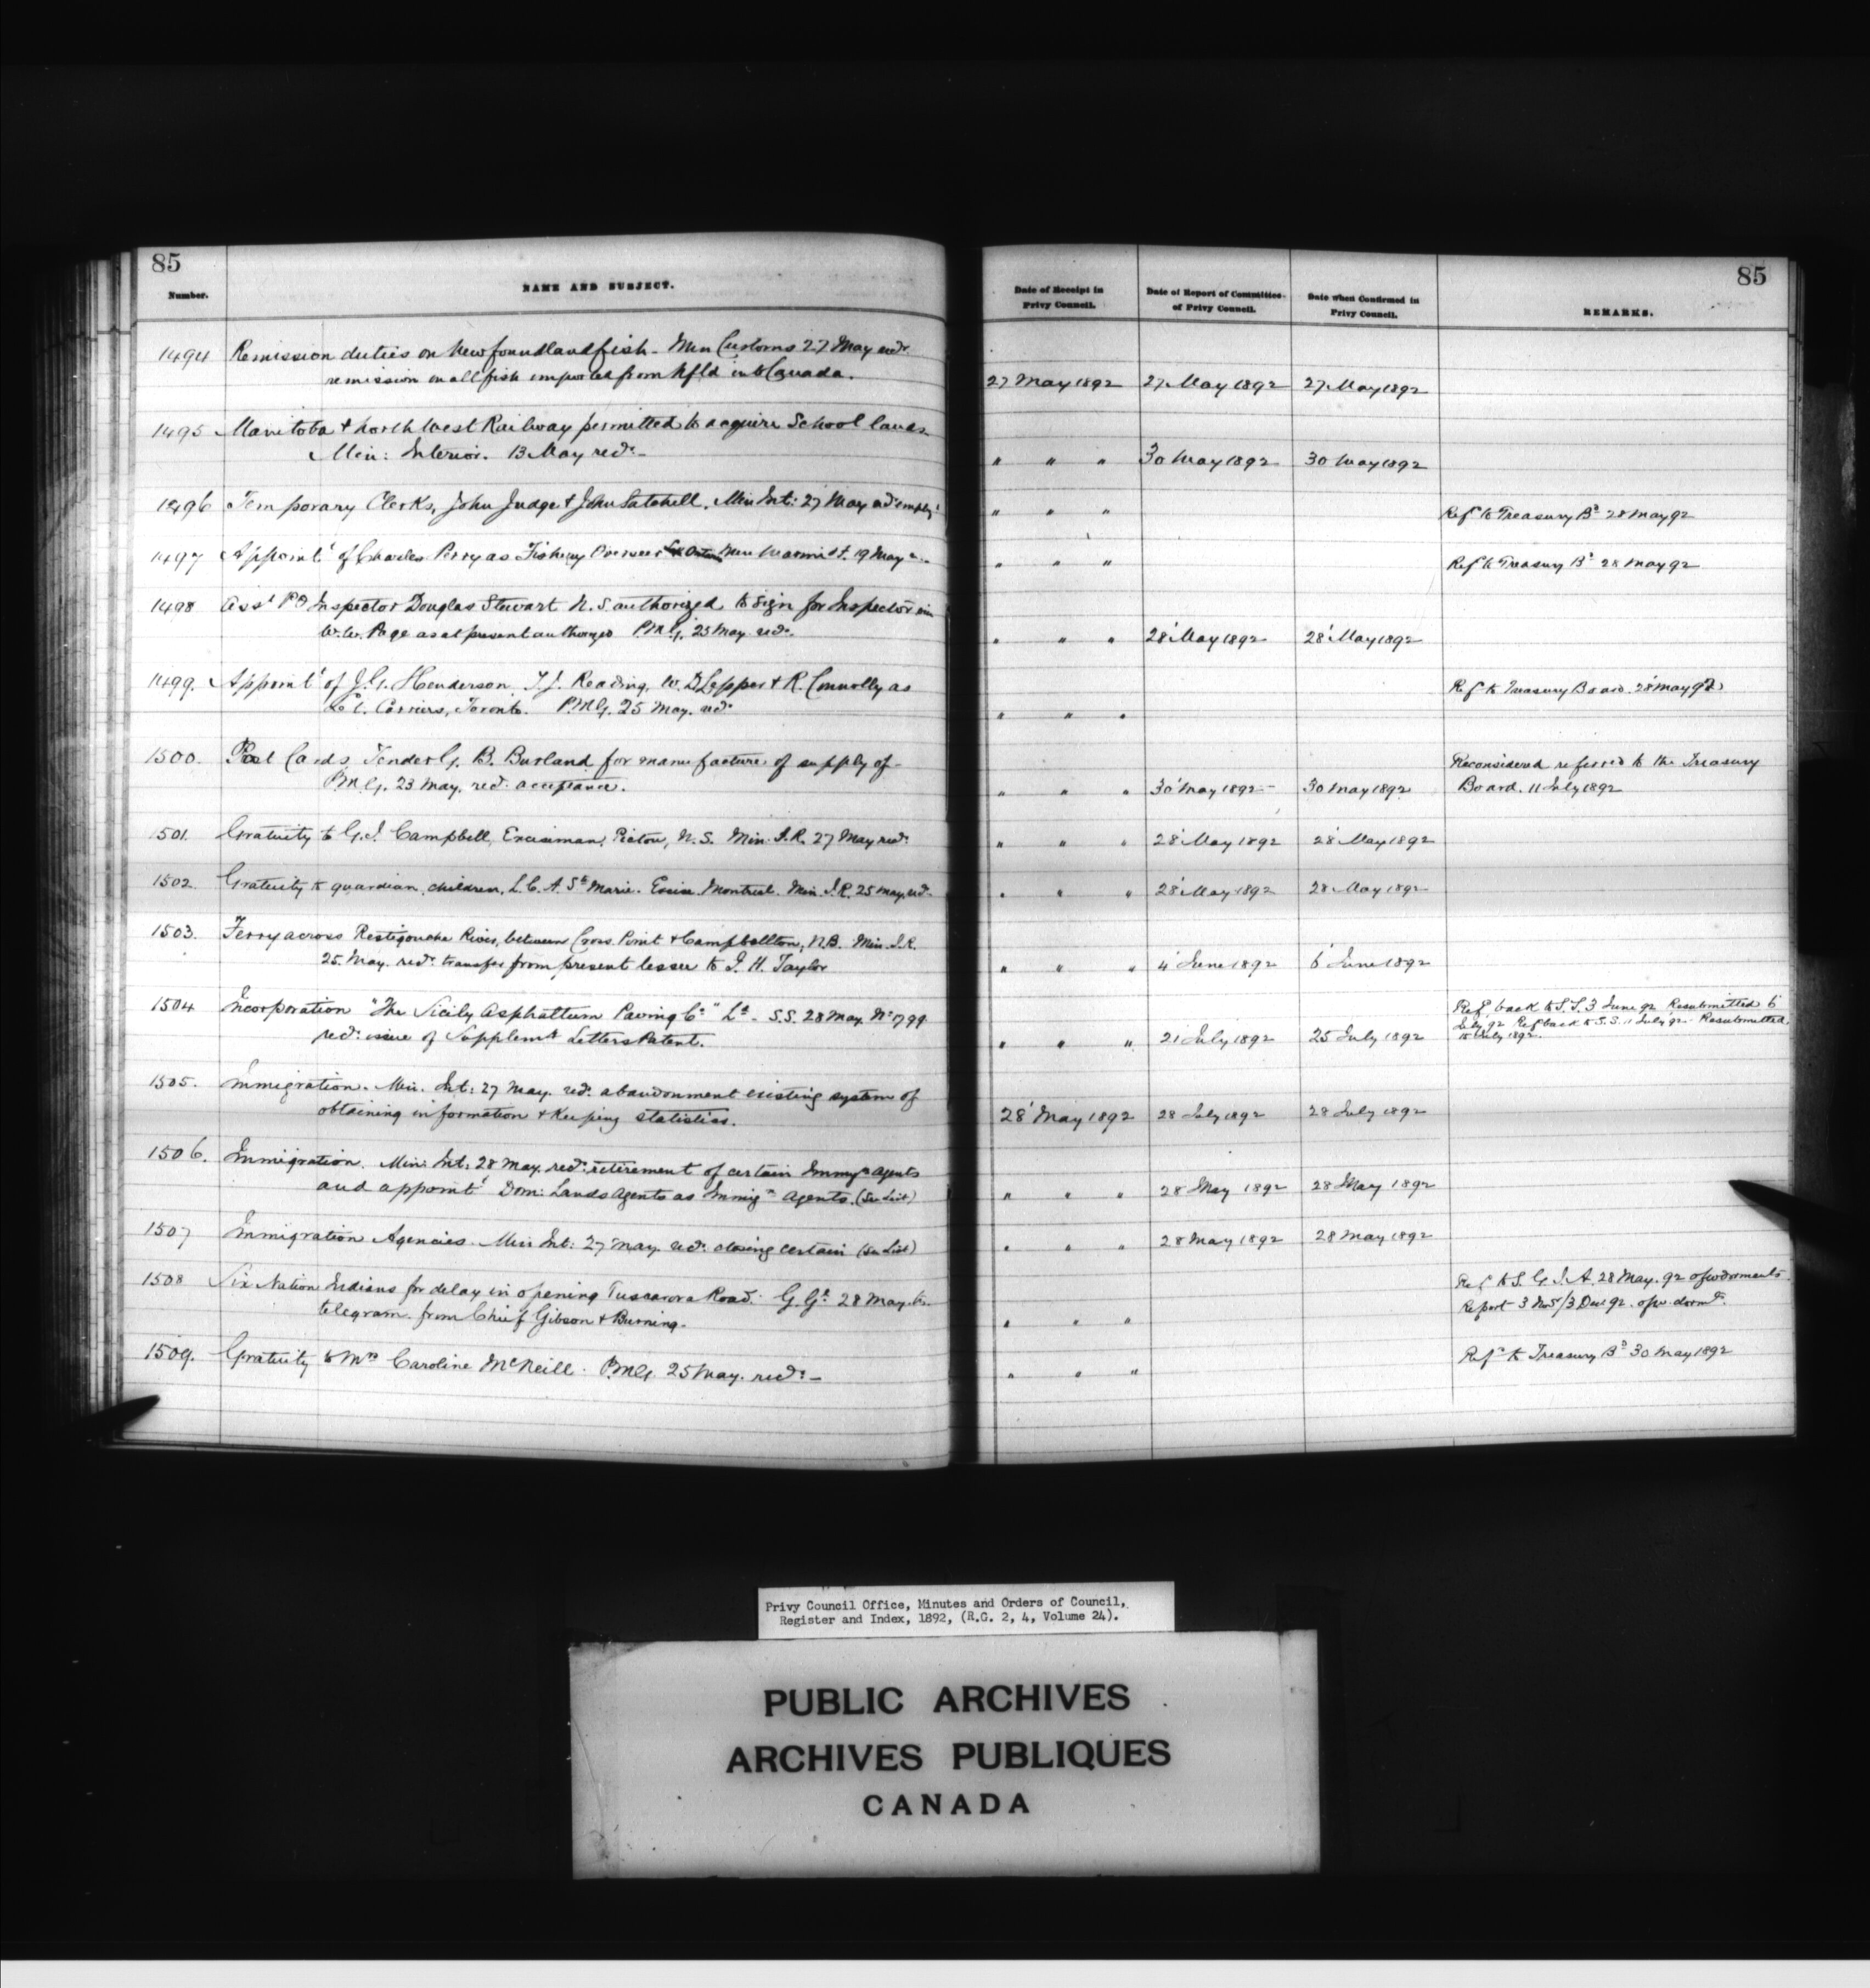 85
Number.
NAME AND SUBJECT.
Date of Receipt in
Privy Council.
Date of Report of Committee
of Privy Council.
Date when Confirmed in
Privy Council.
REMARKS.
85
1494 Remission duties on Newfoundland fish - Min Customs 27 May recd.
remission on all fish imported from Nfld into Canada.
27 May 1892 27 May 1892 27 May 1892
1495 Manitoba & North West Railway permitted to acquire School lands
Min: Interior. 13 May recd. -
" " " 30 May 1892 30 May 1892
1496 Temporary Clerks, John Judge & John Satchell. Min Int: 27 May
" " " Ref to Treasury Bd 28 May 92
1497 Appoint't of Charles Perry as Fishery Overseer Min Marine 19 May
" " " Ref to Treasury Bd 28 May 92
1498 Asst PO Inspector Douglas Stewart N.S. authorized to sign for Inspector
W.W. Page as at present authorized PMG. 25 May recd.
" " " 28 May 1892 28 May 1892
1499. Appoint't of J.G. Henderson, T.J. Reading, W. D Lepper & R. Connolly as
Carriers, Toronto. PMG. 25 May. recd.
" " " Ref to Treasury Board. 28 May 92
1500. Post Cards Tender G. B. Burland for manufacture of supply of -
PMG. 23 May. recd. acceptance.
" " " 30 May 1892 - 30 May 1892 Reconsidered referred to the Treasury
Board. 11 July 1892
1501. Gratuity to G.J. Campbell, Exciseman, Pictou, N.S. Min I.R. 27 May recd.
" " " 28 May 1892 28 May 1892
1502. Gratuity to guardian, children, L.C.A. Ste Marie. Excise Montreal. Min. I.R. 25 May recd.
" " " 28 May 1892 28 May 1892
1503. Ferry across Restigouche River, between Cross Point & Campbellton, N.B. Min. I.R.
25 May. recd. transfer from present lessee to J. H. Taylor
" " " 4 June 1892 6 June 1892
1504 Incorporation "The Sicily Asphaltum Paving Co" Ld - S.S. 28 May No 1799
recd. issue of Supplem't Letters Patent.
" " " 21 July 1892 25 July 1892
Ref. back to S.S. 3 June 92 Resubmitted 6
July 92 Ref back to S.S. 11 July 92. Resubmitted
July 1892.
1505. Immigration. Min. Int: 27 May. recd. abandonment existing system of
obtaining information & Keeping statistics.
28 May 1892 28 July 1892 28 July 1892
1506. Immigration. Min: Int: 28 May. recd. retirement of certain Immgn agents
and appoint't Dom: Lands Agents as Immign agents. (See List)
" " " 28 May 1892 28 May 1892
1507 Immigration Agencies. Min Int: 27 May recd. closing certain (See List)
" " " 28 May 1892 28 May 1892
1508 Six Nation Indians for delay in opening Tuscarora Road. G. Gl. 28 May
telegram from Chief Gibson & Burning.
" " " Ref to S. G. I. A. 28 May. 92
Report 3 Nov/3 Dec 92.
1509. Gratuity to Mrs Caroline McNeill. PMG. 25 May. recd. -
" " " Ref. to Treasury Bd 30 May 1892
Privy Council Office, Minutes and Orders of Council,
Register and Index, 1892, (R.G. 2, 4, Volume 24).
PUBLIC ARCHIVES
ARCHIVES PUBLIQUES
CANADA